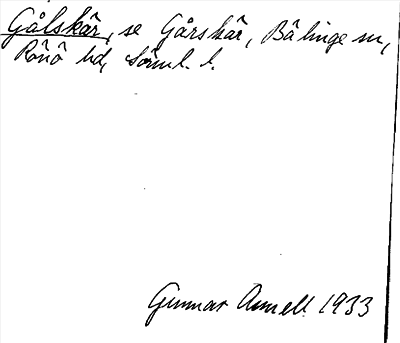 Gålskär, se Gårskär, Bälinge sn,
Rönö hd, Söml. l.
Gunnar Amell 1933